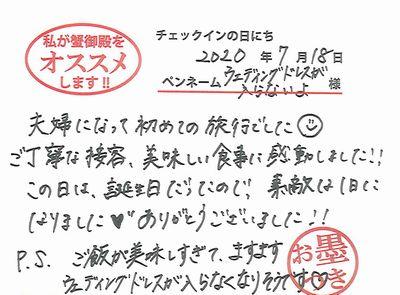 私が蟹御殿を
オススメ
します!!
チェックインの日にち
2020年7月18日
ペンネーム ウェディングドレスが
入らないよ 様
夫婦になって初めての旅行でした
ご丁寧な接客、美味しい食事に感動しました!!
この日は、誕生日だったので、素敵な1日に
なりました♥ ありがとうございました!!
P.S. ご飯が美味しすぎて、ますます
ウェディングドレスが入らなくなりそうです♡
お墨
つき